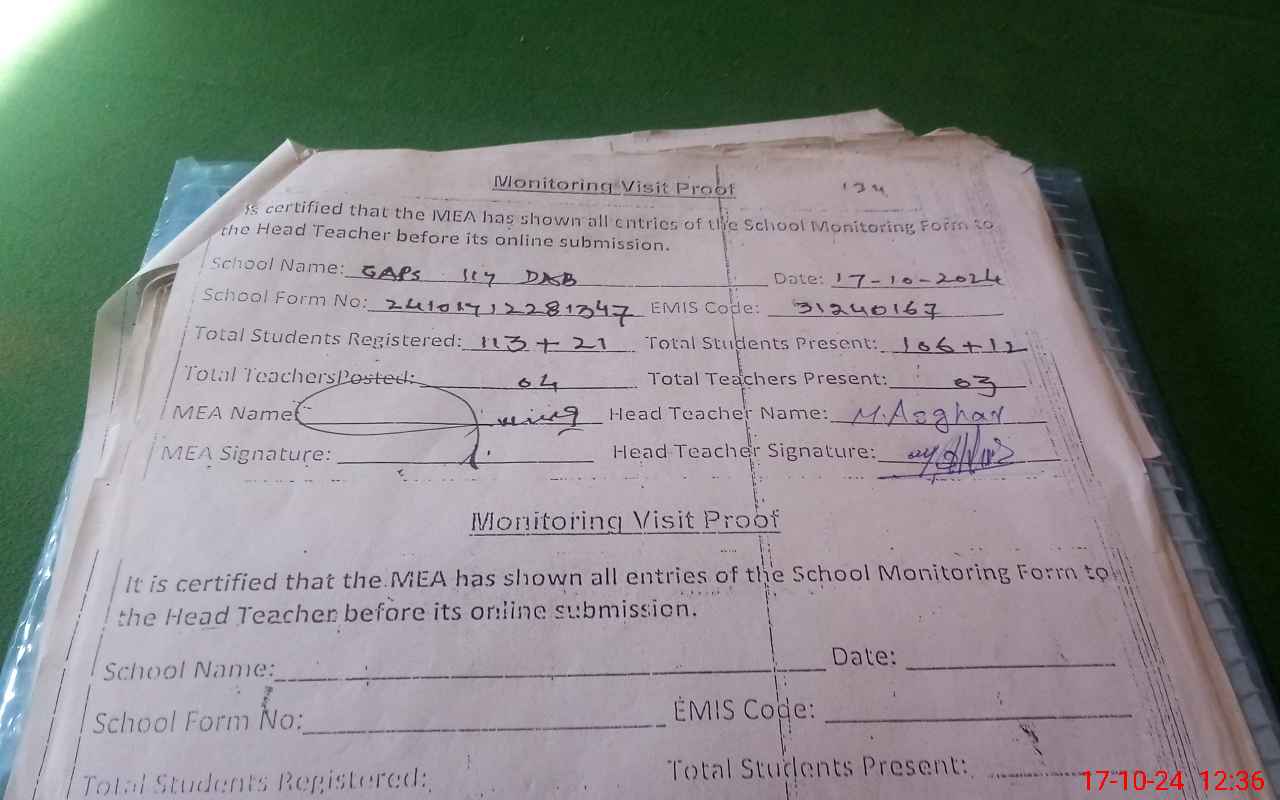 Monitoring Visit Proof 134
is certified that the MEA has shown all entries of the School Monitoring Form to
the Head Teacher before its online submission.
School Name: GAPS 117 DNB Date: 17-10-2024
School Form No: 24101712281347 EMIS Code: 31240167
Total Students Registered: 113 + 21 Total Students Present: 106 + 12
Total Teachers Posted: 04 Total Teachers Present: 03
MEA Name Head Teacher Name: M. Asghar
MEA Signature: Head Teacher Signature:
Monitoring Visit Proof
It is certified that the MEA has shown all entries of the School Monitoring Form to
the Head Teacher before its online submission.
School Name: Date:
School Form No: EMIS Code:
Total Students Registered: Total Students Present:
17-10-24 12:36